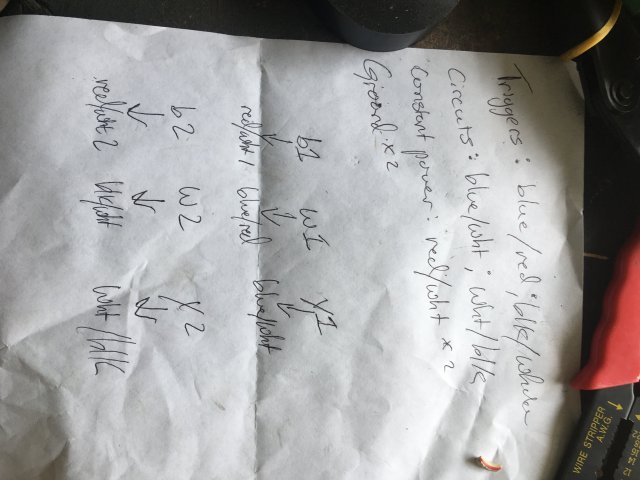 Triggers: blue/red; blk/white
Circuits: blue/wht; wht/blk
Constant power: red/wht x2
Ground x2
b1 w1 y1
red/wht 1 blue/red blue/wht
b2 w2 y2
red/wht 2 blk/wht wht/blk
WIRE STRIPPER
A.W.G.